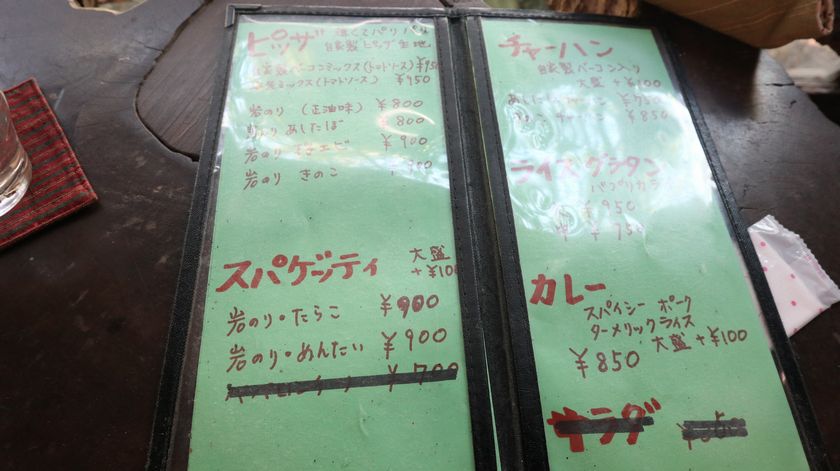 ピッザ 薄くてパリパリ
自家製 ピッザ生地
ベーコンミックス(トマトソース) ¥950
ミックス(トマトソース) ¥950
岩のり (正油味) ¥800
岩のり あしたば ¥800
岩のり エビ ¥900
岩のり きのこ 900
スパゲッティ 大盛 +¥100
岩のり・たらこ ¥900
岩のり・めんたい ¥900
¥700
チャーハン
自家製ベーコン入り
大盛 +¥100
チャーハン ¥850
ライスグラタン
パプリカライス
¥950
カレー
スパイシー ポーク
ターメリックライス
大盛 +¥100
¥850
サラダ